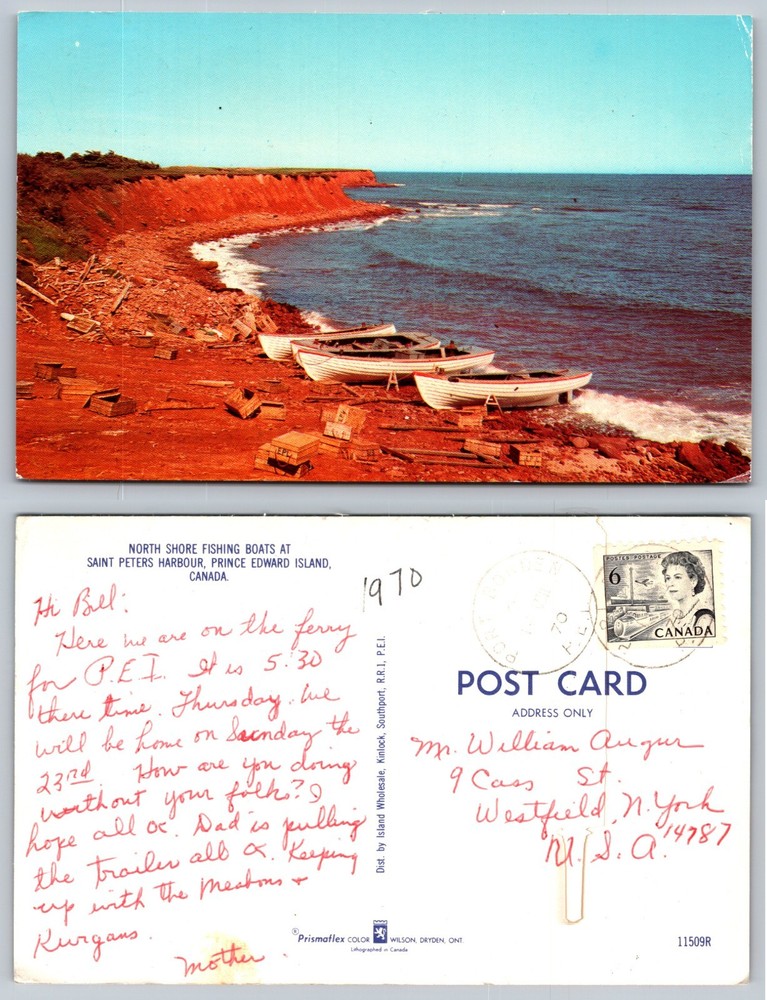 NORTH SHORE FISHING BOATS AT
SAINT PETERS HARBOUR, PRINCE EDWARD ISLAND,
CANADA.
1970
Hi Bill:
Here we are on the ferry
for P.E.I. It is 5:30
there time. Thursday. We
will be home on Sunday the
23rd. How are you doing
without your folks? I
hope all OK. Dad is pulling
the trailer all OK. Keeping
up with the +
Mother
Dist. by Island Wholesale, Kinlock, Southport, R.R.I, P.E.I.
POSTES POSTAGE
6
CANADA
PORT BORDEN
70
P.E.I.
POST CARD
ADDRESS ONLY
Mr. William Augur
9 Cass St.
Westfield, N. York
14787
U. S. A.
®Prismaflex COLOR WILSON, DRYDEN, ONT.
Lithographed in Canada
11509R